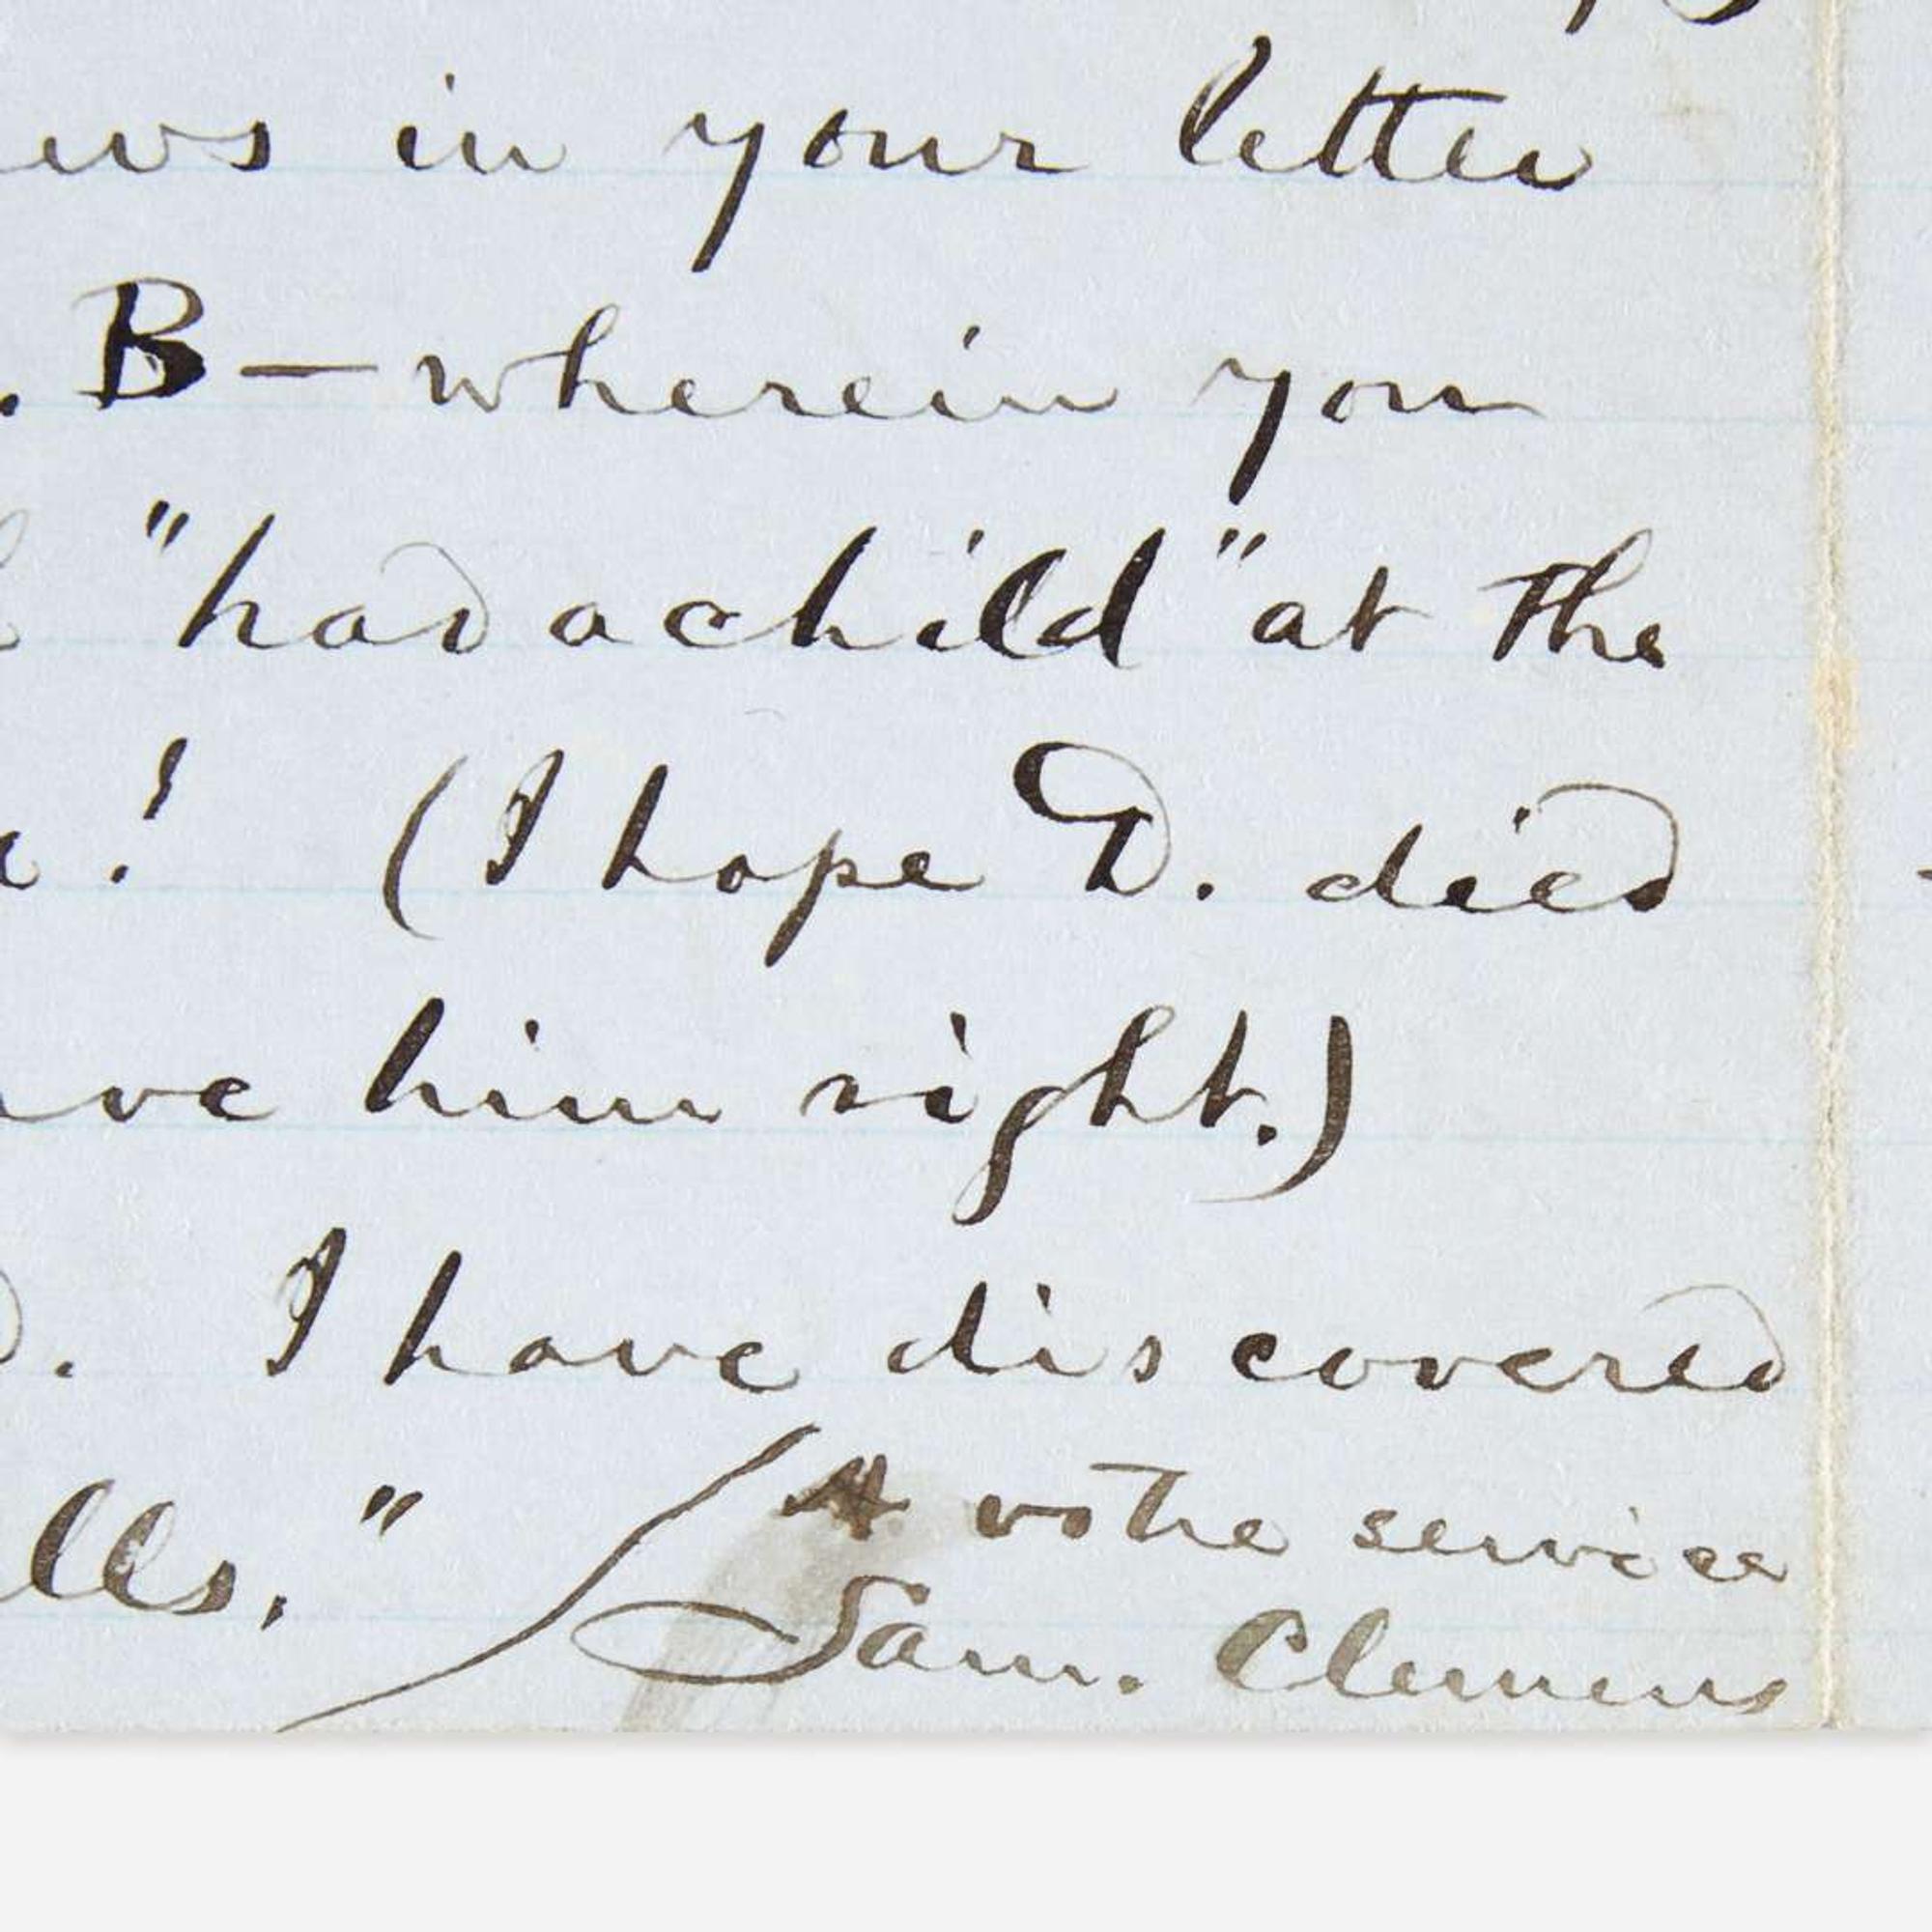 ews in your letter
. B — wherein you
"had a child" at the
! (I hope D. died
ave him right.)
d. I have discovered
lls." A votre service
Sam. Clemens